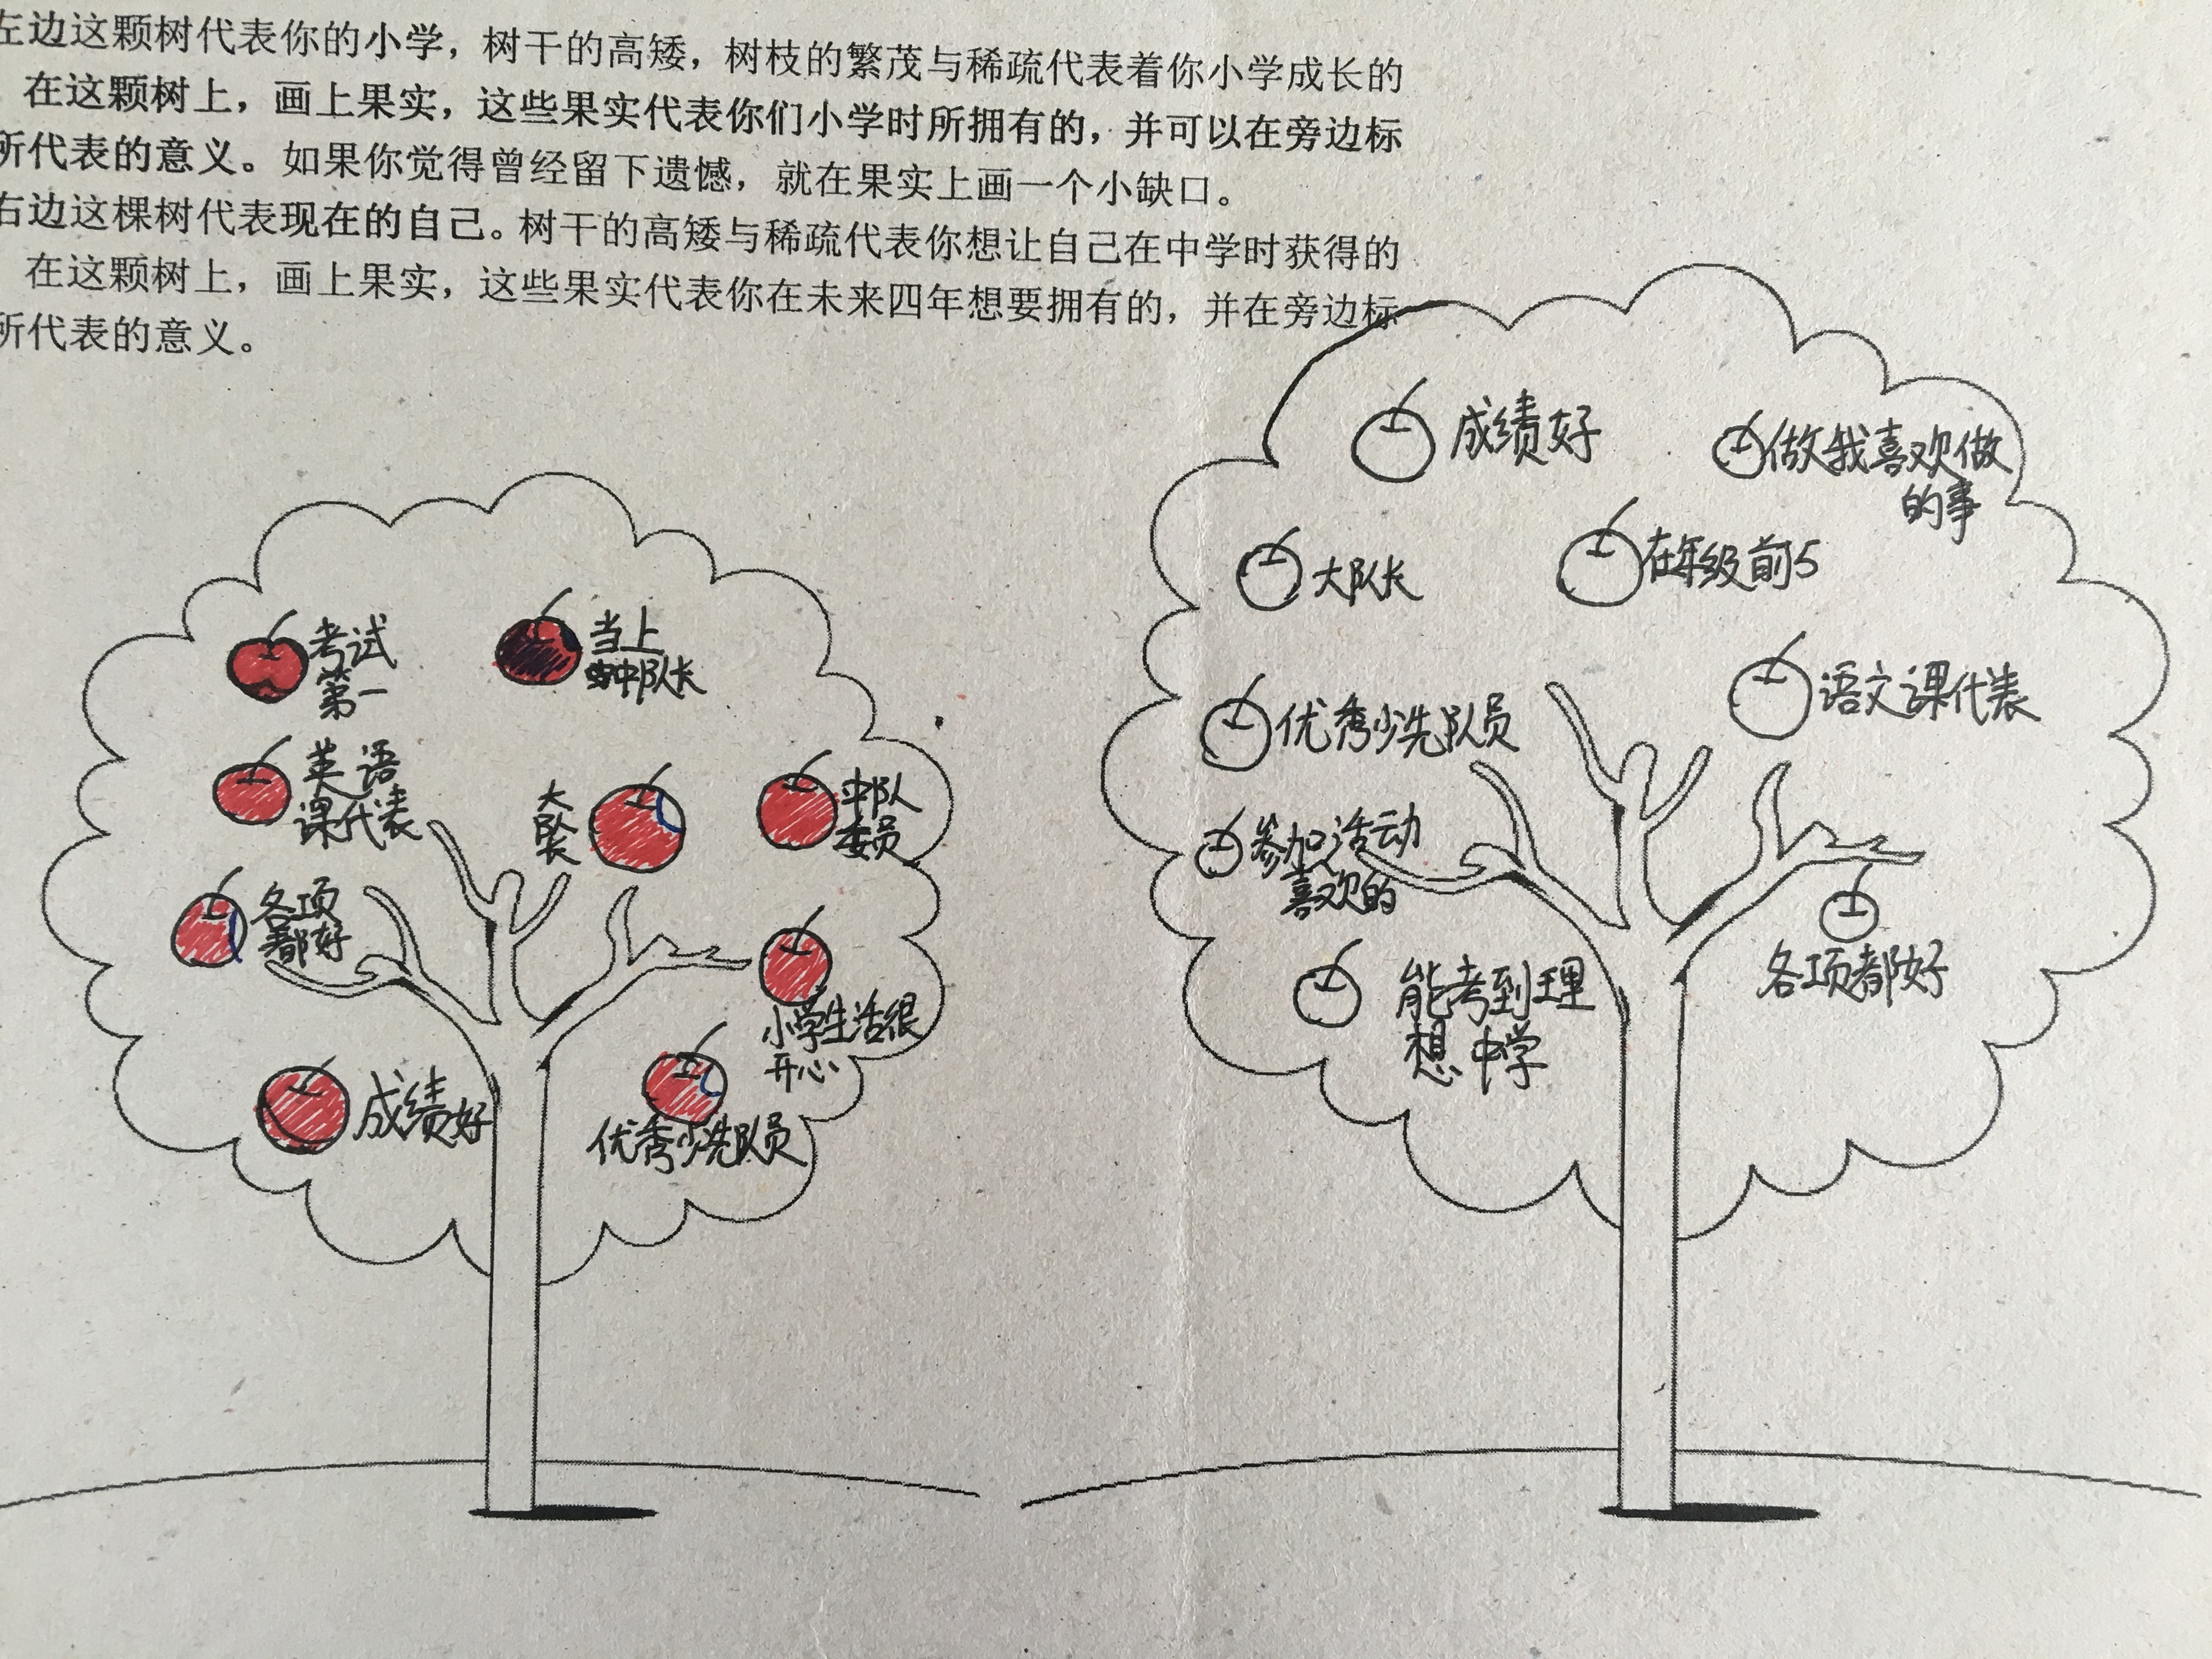 左边这颗树代表你的小学，树干的高矮，树枝的繁茂与稀疏代表着你小学成长的
在这颗树上，画上果实，这些果实代表你们小学时所拥有的，并可以在旁边标
所代表的意义。如果你觉得曾经留下遗憾，就在果实上画一个小缺口。
右边这棵树代表现在的自己。树干的高矮与稀疏代表你想让自己在中学时获得的
在这颗树上，画上果实，这些果实代表你在未来四年想要拥有的，并在旁边标
所代表的意义。
考试
第一
当上
中队长
英语
课代表
大
队长
中队
委员
各项
都好
小学生活很
开心
成绩好
优秀少先队员
成绩好
做我喜欢做
的事
大队长
在年级前5
优秀少先队员
语文课代表
参加活动
喜欢的
各项都好
能考到理
想中学